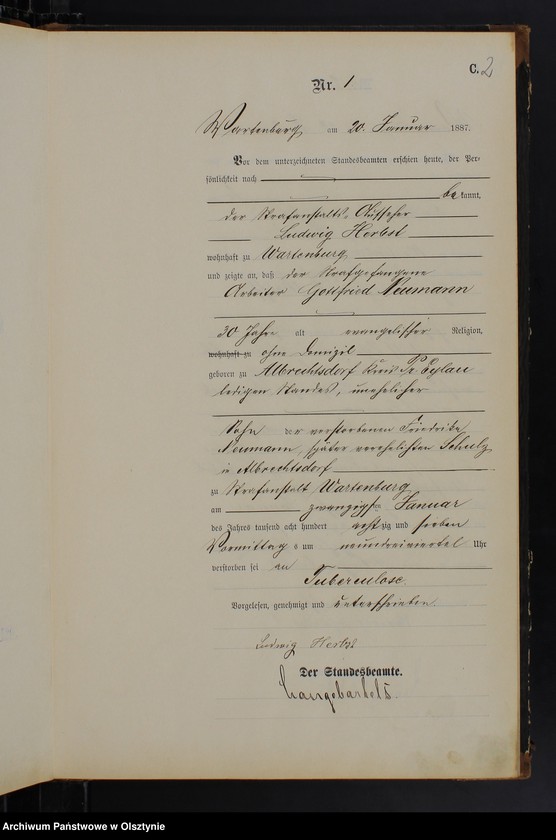 C. 2
Nr. 1
Wartenburg am 20. Januar 1887.
Vor dem unterzeichneten Standesbeamten erschien heute, der Per-
sönlichkeit nach
be kannt,
der Strafanstalts-Aufseher
Ludwig Herbst
wohnhaft zu Wartenburg
und zeigte an, daß der Strafgefangene
Arbeiter Gottfried Neumann
30 Jahre alt evangelischer Religion,
wohnhaft zu ohne Domizil
geboren zu Albrechtsdorf Kreis Pr. Eylau
ledigen Standes, unehelicher
Sohn der verstorbenen Friedrike
Neumann, später verehelichten Schulz
in Albrechtsdorf
zu Strafanstalt Wartenburg
am zwanzigsten Januar
des Jahres tausend acht hundert achtzig und sieben
Vormittags um neundreiviertel Uhr
verstorben sei an
Tuberculose.
Vorgelesen, genehmigt und unterschrieben.
Ludwig Herbst
Der Standesbeamte.
Archiwum Państwowe w Olsztynie